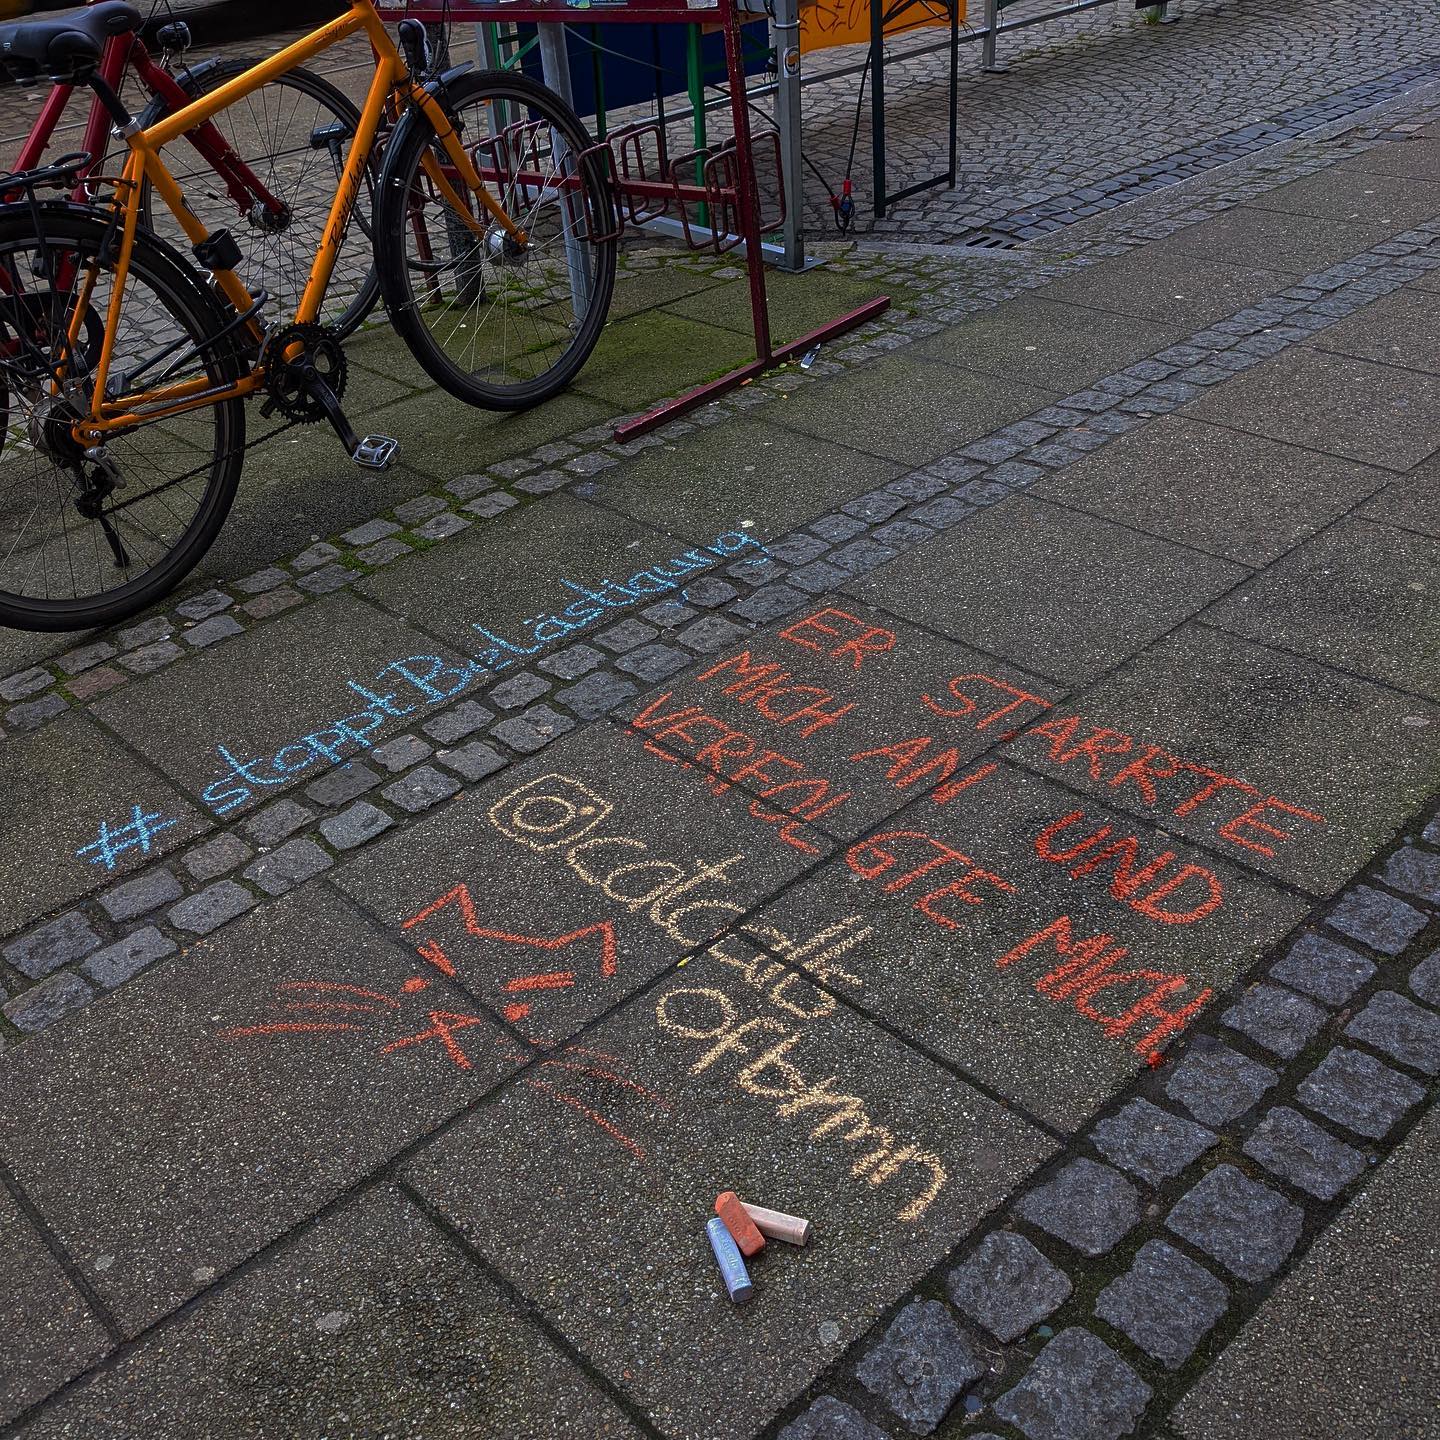 # stopptBelästigung
ER STARRTE
MICH AN UND
VERFOLGTE MICH
catcalls
ofbrmn